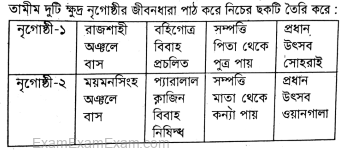 তামীম দুটি ক্ষুদ্র নৃগোষ্ঠীর জীবনধারা পাঠ করে নিচের ছকটি তৈরি করে :
নৃগোষ্ঠী-১ রাজশাহী বহিগোত্র সম্পত্তি প্রধান
অঞ্চলে বিবাহ পিতা থেকে উৎসব
বাস প্রচলিত পুত্র পায় সোহরাই
নৃগোষ্ঠী-২ ময়মনসিংহ প্যারালাল সম্পত্তি প্রধান
অঞ্চলে ক্লাজিন মাতা থেকে উৎসব
বাস বিবাহ কন্যা পায় ওয়ানগালা
নিষিদ্ধ
ExamExamExam.com